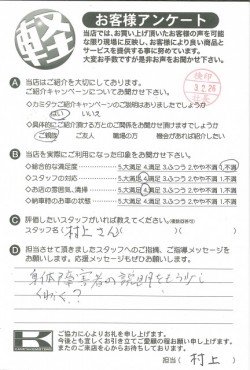 軽
お客様アンケート
当店では、お買い上げ頂いたお客様の声を可能
な限り現場に反映し、お客様により良い商品と
サービスを提供する事に努めています。
大変お手数ですが是非お声をお聞かせ下さい。
A 当店はご紹介を大切にしております。
ご紹介キャンペーンについてお聞かせ下さい。
◇カミタウご紹介キャンペーンのご説明はありましたでしょうか
はい いいえ
◇具体的にご紹介頂ける方とのご関係をお聞かせ頂けますでしょうか
ご親戚 ご友人 職場の方 機会があれば紹介したい
B 当店を実際にご利用になった印象をお聞かせ下さい。
◇総合的な満足度 5.大満足 4.満足 3.ふつう 2.やや不満 1.不満
◇スタッフの対応 5.大満足 4.満足 3.ふつう 2.やや不満 1.不満
◇お店の雰囲気、清掃 5.大満足 4.満足 3.ふつう 2.やや不満 1.不満
◇納車時のお車の状態 5.大満足 4.満足 3.ふつう 2.やや不満 1.不満
C 評価したいスタッフがいれば教えてください。
スタッフ名(村上さん)( )( )
D 担当させて頂きましたスタッフへのご指摘、ご指導メッセージを
お願いします。応援メッセージもぜひお願いします。
身体障害者の説明をもう少し
くわしく?
K
ご協力に心よりお礼を申し上げます。
今後とも宜しくお引き立てご愛顧の程お願い申し上げます。
またのご来店を心からお待ちしております。
担当(村上)